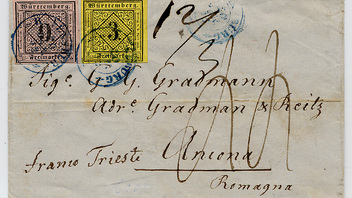 Württemberg.
9.
Freimarke
Württemberg.
3.
Freimarke
12
Sige. G. G. Gradmann
Adre. Gradman & Reitz
franco Trieste Ancona
Romagna